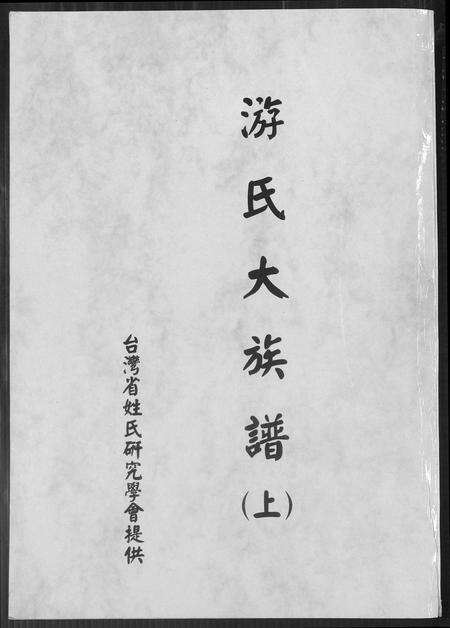 游氏大族譜(上)
台灣省姓氏研究學會提供